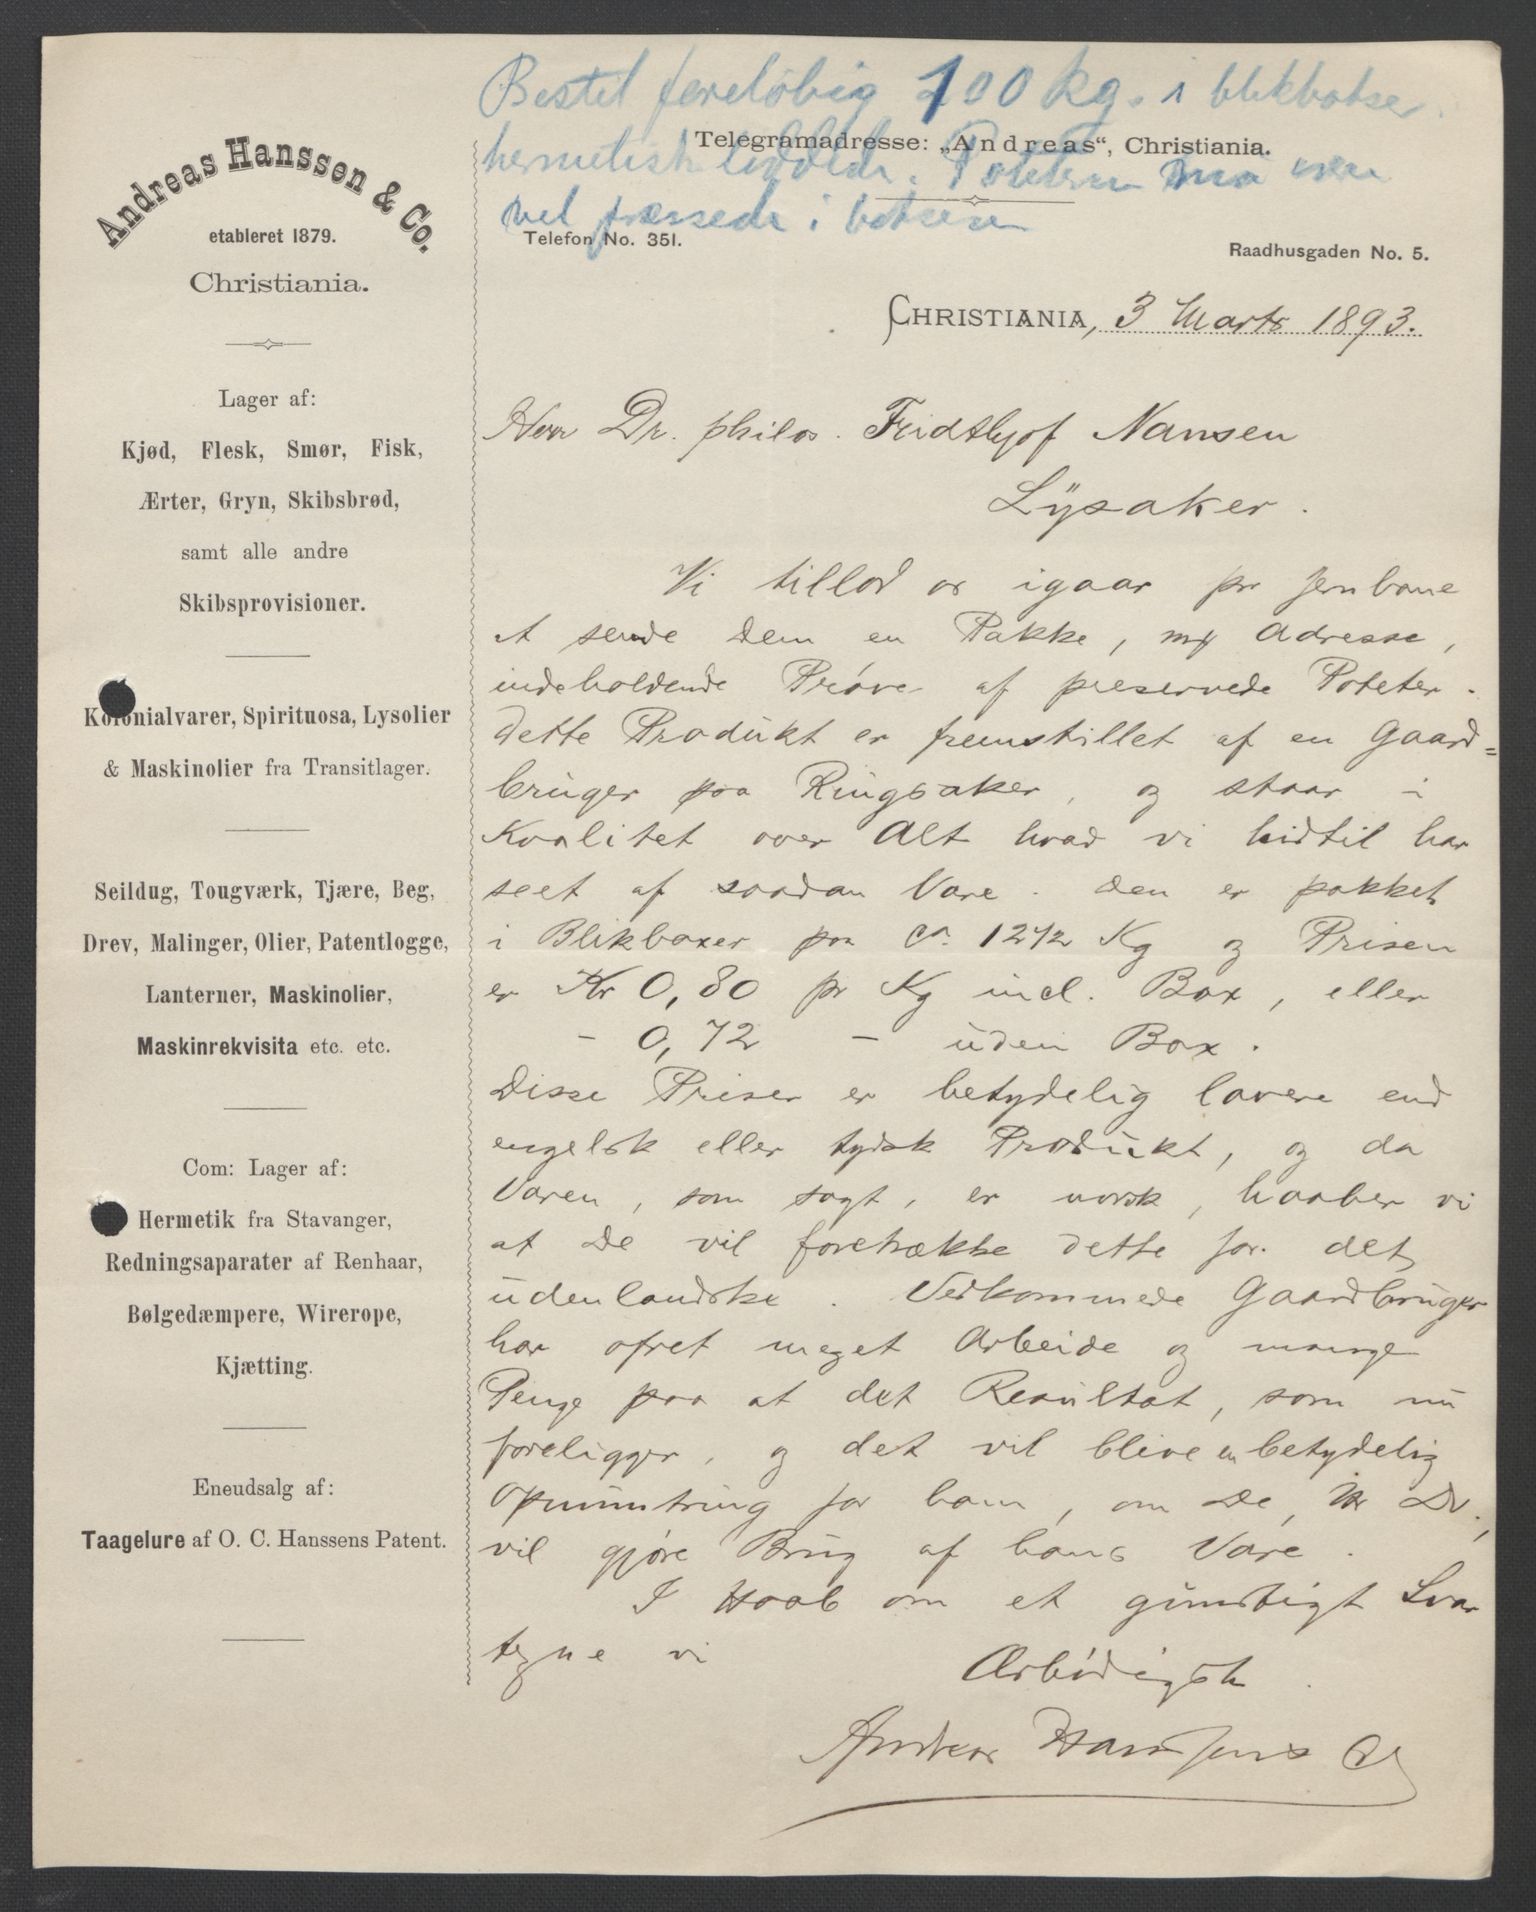 Bestil foreløbig 100 kg. i blikbokser
hermetisk loddede. Poteterne må være
vel pressede i boksene
Telegramadresse: „Andreas“, Christiania.
Telefon No. 351.
Raadhusgaden No. 5.
Andreas Hanssen & Co.
etableret 1879.
Christiania.
Lager af:
Kjød, Flesk, Smør, Fisk,
Ærter, Gryn, Skibsbrød,
samt alle andre
Skibsprovisioner.
Kolonialvarer, Spirituosa, Lysolier
& Maskinolier fra Transitlager.
Seildug, Tougværk, Tjære, Beg,
Drev, Malinger, Olier, Patentlogge,
Lanterner, Maskinolier,
Maskinrekvisita etc. etc.
Com: Lager af:
Hermetik fra Stavanger,
Redningsaparater af Renhaar,
Bølgedæmpere, Wirerope,
Kjætting.
Eneudsalg af:
Taagelure af O. C. Hanssens Patent.
CHRISTIANIA, 3 Marts 1893.
Herr Dr. philos. Fridthjof Nansen
Lÿsaker.
Vi tillod os igaar pr Jernbane
at sende Dem en Pakke, m/ Adresse,
indeholdende Prøve af preservede Poteter.
Dette Produkt er fremstillet af en Gaard=
bruger paa Ringsaker, og staar i
Kvalitet over Alt hvad vi hidtil har
seet af saadan Vare. Den er pakket
i Blikboxer paa ca. 12 1/2 Kg og Prisen
er Kr 0,80 pr Kg incl. Box, eller
- 0,72 - uden Box.
Disse Priser er betydelig lavere end
engelsk eller tydsk Produkt, og da
Varen, som sagt, er norsk, haaber vi
at De vil foretrække dette for det
udenlandske. Vedkommede Gaardbruger
har ofret meget Arbeide og mange
Penge paa at det Resultat, som nu
foreligger, og det vil blive en betydelig
Opmuntring for ham, om De, Hr Dr.,
vil gjøre Brug af hans Vare.
I Haab om et gunstigt Svar
tegne vi
Ærbødigst
Andreas Hanssen & Co